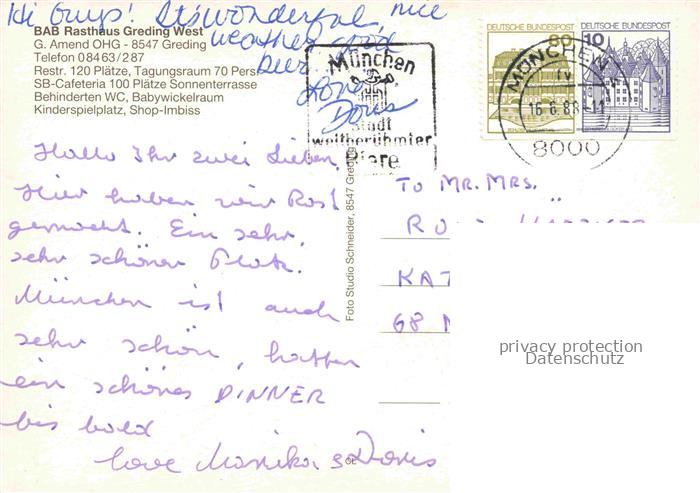 Hi Guys! It's wonderful, nice
weather, good
beer
Love
Doris
BAB Rasthaus Greding West
G. Amend OHG - 8547 Greding
Telefon 08463/287
Restr. 120 Plätze, Tagungsraum 70 Pers
SB-Cafeteria 100 Plätze Sonnenterrasse
Behinderten WC, Babywickelraum
Kinderspielplatz, Shop-Imbiss
München
Stadt
weltberühmter
Biere
DEUTSCHE BUNDESPOST
80
DEUTSCHE BUNDESPOST
10
MÜNCHEN
8000
Hallo Ihr zwei Lieben,
Hier haben wir Rast
gemacht. Ein sehr,
sehr schöner Platz.
München ist auch
sehr schön, hatten
ein schönes DINNER
bis bald
love Monika & Doris
Foto Studio Schneider, 8547 Greding
TO MR. MRS.
KAT
68
privacy protection
Datenschutz